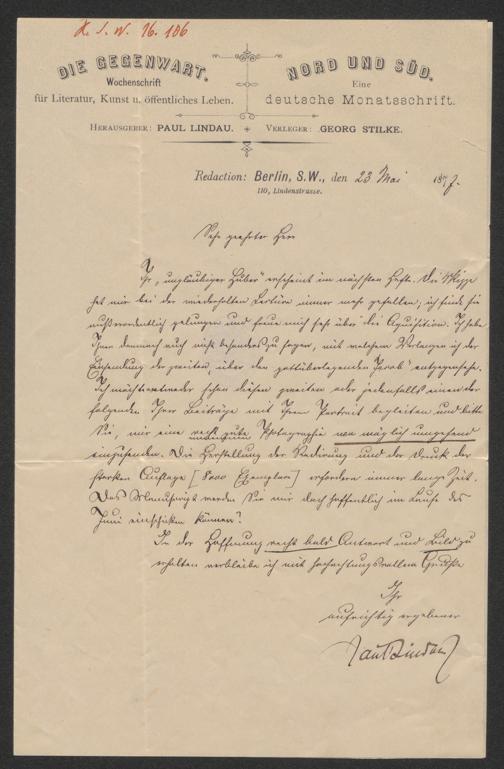 DIE GEGENWART.
Wochenschrift
für Literatur, Kunst u. öffentliches Leben.
NORD UND SÜD.
Eine
deutsche Monatsschrift.
HERAUSGEBER: PAUL LINDAU. + VERLEGER: GEORG STILKE.
Redaction: Berlin, S.W., den 23 Mai 1877.
110, Lindenstrasse.
Sehr geehrter Herr
Ihr „ungläubiger Huber“ erscheint im nächsten Hefte. Die Skizze
hat mir bei der wiederholten Lectüre immer mehr gefallen; ich finde sie
außerordentlich gelungen und freue mich sehr über die Aquisition. Ich habe
Ihnen demnach auch nicht besonders zu sagen, mit welchem Verlangen ich der
Einsendung der zweiten über den gottüberlegenen Jacob“ entgegensehe.
Ich möchte entweder schon diesen zweiten oder jedenfalls einen der
folgenden Ihrer Beiträge mit Ihrem Portrait begleiten und bitte
Sie, mir eine recht gute Photographie wo möglich umgehend
einzusenden. Die Herstellung der Radirung und der Druck der
starken Auflage [8000 Exemplare] erfordern immer lange Zeit.
Das Manuscript werden Sie mir doch hoffentlich im Laufe des
Juni einschicken können?
In der Hoffnung recht bald Antwort und Bild zu
erhalten verbleibe ich mit hochachtungsvollem Gruße
Ihr
aufrichtig ergebener
Paul Lindau